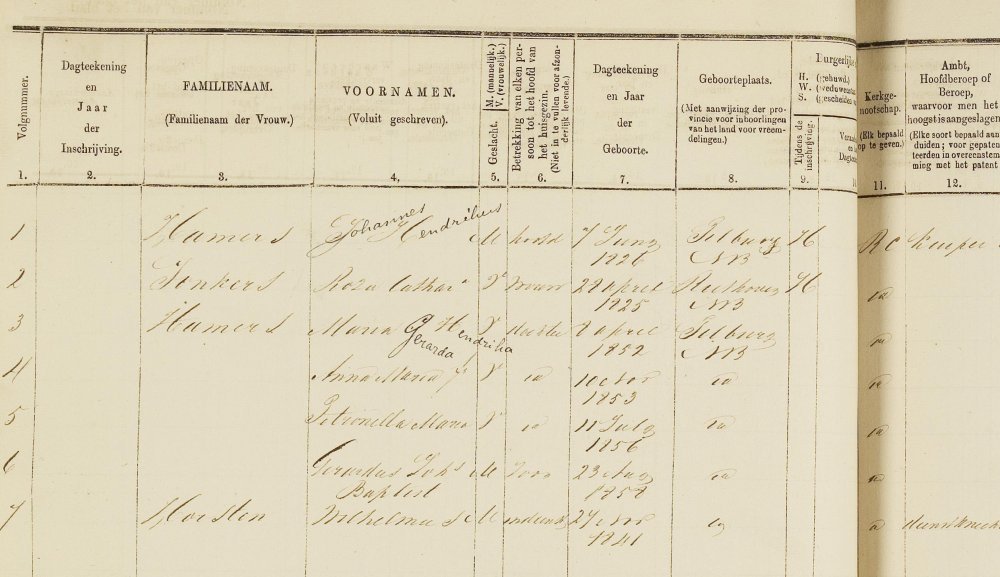 Volgnummer.
Dagteekening
en
Jaar
der
Inschrijving.
FAMILIENAAM.
(Familienaam der Vrouw.)
VOORNAMEN.
(Voluit geschreven).
Geslacht. M. (mannelijk.) V. (vrouwelijk.)
Betrekking van elken per-
soon tot het hoofd van
het huisgezin.
(Niet in te vullen voor afzon-
derlijk levende.)
Dagteekening
en Jaar
der
Geboorte.
Geboorteplaats.
(Met aanwijzing der pro-
vincie voor inboorlingen
van het land voor vreem-
delingen.)
Burgerlijke
H. (gehuwd.)
W. (weduwen
S. (gescheiden
Tijdens de
inschrijving.
Kerkge-
nootschap.
(Elk bepaald
op te geven.)
Ambt,
Hoofdberoep of
Beroep,
waarvoor men het
hoogst is aangeslagen
(Elke soort bepaald aan
duiden; voor gepaten
teerden in overeenstem
ming met het patent
1. 2. 3. 4. 5. 6. 7. 8. 9. 11. 12.
1 Hamers Johannes Hendrikus M hoofd 7 Juny Tilburg H RC Kuiper
1826 NB
2 Jonkers Roza Cathar^a V vrouw 28 april Reethoven H id
1825 NB
3 Hamers Maria Gerarda Hendrika V dochter 8 april Tilburg id
1852 NB
4 Anna Maria V id 10 id id
1853
5 Petronella Maria V id 11 July id id
1856
6 Gerardus Joh^s M Zoon 23 Aug id id
Baptist 1858
7 Horsten Wilhelmus M 27 id id dienstknecht
1841